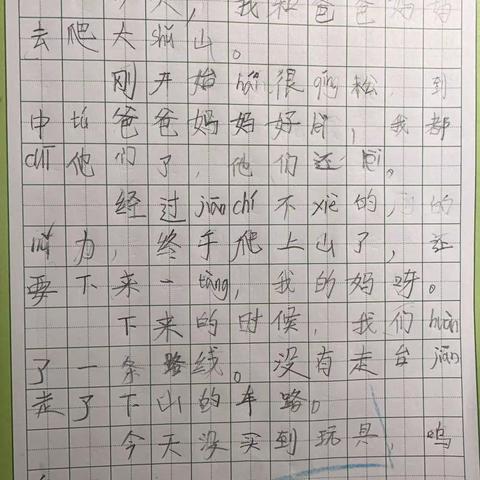 天，我和爸爸妈妈
去爬大shū山。
刚开始hái很qīng松，到
中tú爸爸妈妈好lèi，我都
chī他们了，他们还lèi。
经过jiānchí不xiè的，的
力，终于爬上山了，还
要下来一tàng，我的妈呀。
下来的时候，我们huàn
了一条路线。没有走台jiān
走了下山的车路。
今天没买到玩具，呜